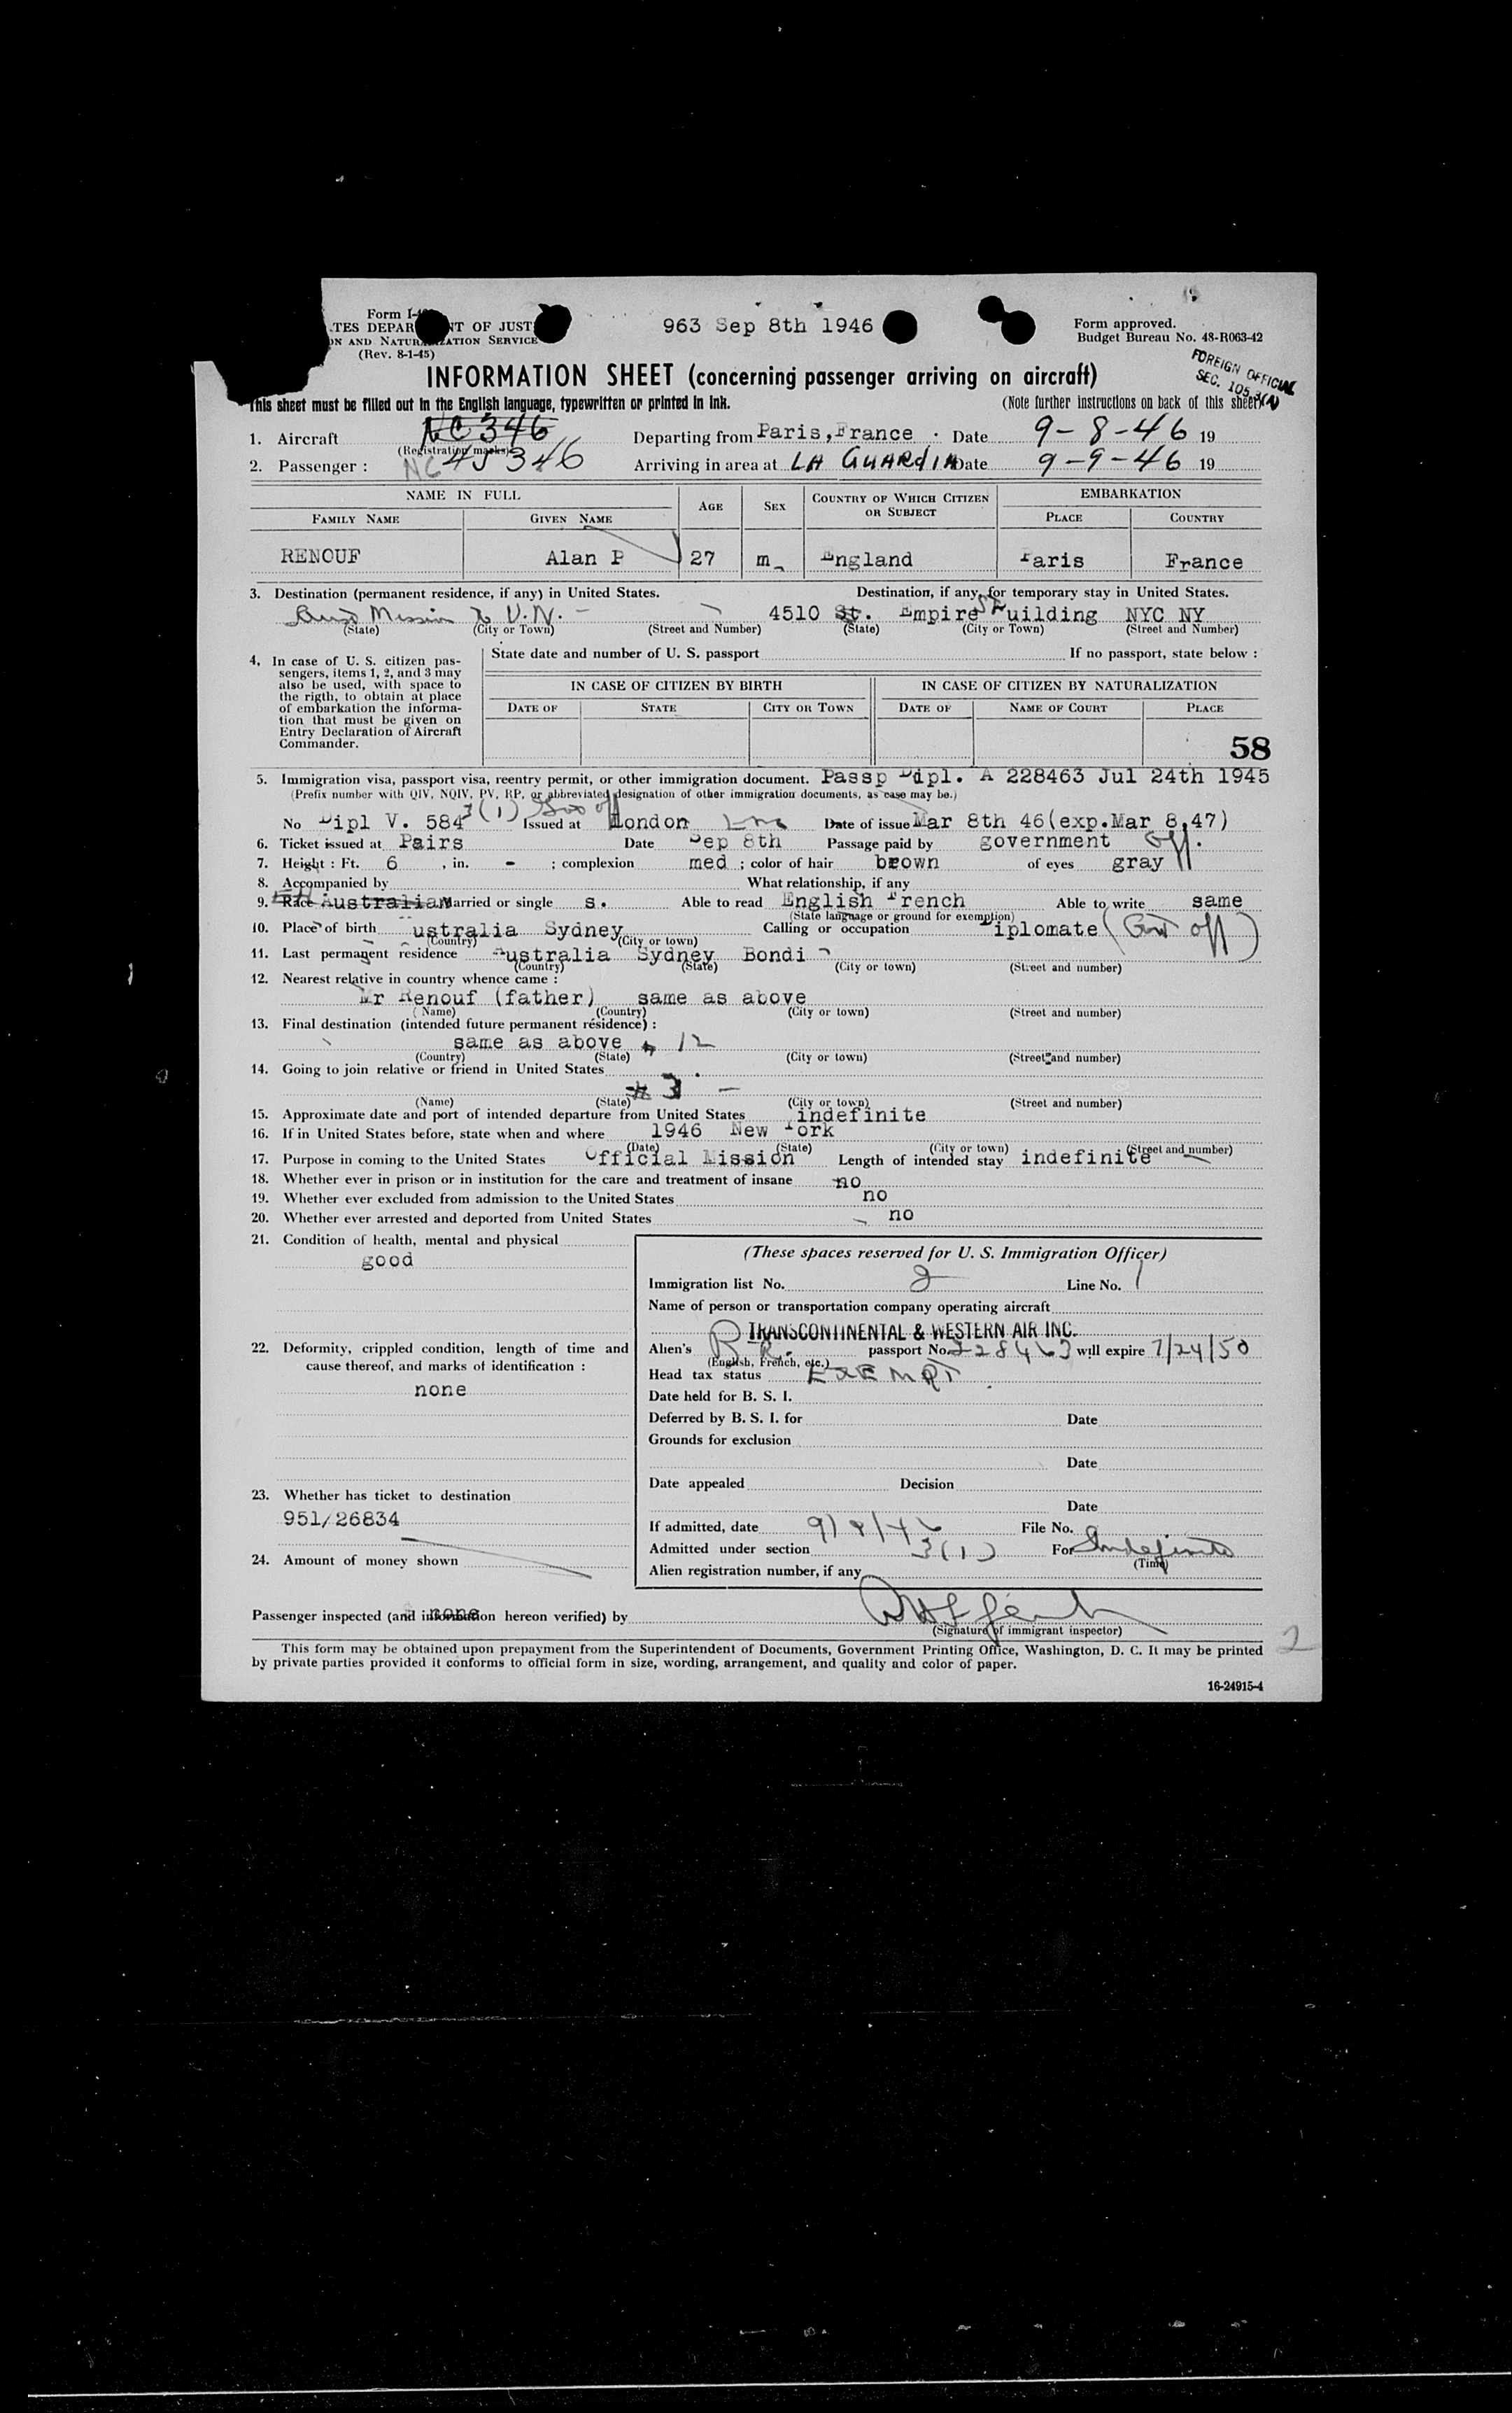 Form I-4
TES DEPAR NT OF JUST
ON AND NATURALIZATION SERVICE
(Rev. 8-1-45)
963 Sep 8th 1946
Form approved.
Budget Bureau No. 48-R063-42
FOREIGN OFFICIAL
SEC. 105.3(A)
INFORMATION SHEET (concerning passenger arriving on aircraft)
This sheet must be filled out in the English language, typewritten or printed in ink.
(Note further instructions on back of this sheet)
1. Aircraft NC 346 Departing from Paris, France Date 9-8-46 19
(Registration marks)
2. Passenger : NC 45346 Arriving in area at LA GUARDIA Date 9-9-46 19
NAME IN FULL AGE SEX COUNTRY OF WHICH CITIZEN OR SUBJECT EMBARKATION
FAMILY NAME GIVEN NAME PLACE COUNTRY
RENOUF Alan P 27 m England Paris France
3. Destination (permanent residence, if any) in United States. Destination, if any, for temporary stay in United States.
Aust Mission to U.N. - 4510 St. Empire St Building NYC NY
(State) (City or Town) (Street and Number) (State) (City or Town) (Street and Number)
4. In case of U. S. citizen pas-
sengers, items 1, 2, and 3 may
also be used, with space to
the rigth, to obtain at place
of embarkation the informa-
tion that must be given on
Entry Declaration of Aircraft
Commander.
State date and number of U. S. passport If no passport, state below :
IN CASE OF CITIZEN BY BIRTH IN CASE OF CITIZEN BY NATURALIZATION
DATE OF STATE CITY OR TOWN DATE OF NAME OF COURT PLACE
58
5. Immigration visa, passport visa, reentry permit, or other immigration document. Passp Dipl. A 228463 Jul 24th 1945
(Prefix number with QIV, NQIV, PV, RP, or abbreviated designation of other immigration documents, as case may be.)
3(1) Gov off
No Dipl V. 584 Issued at London Date of issue Mar 8th 46(exp.Mar 8,47)
6. Ticket issued at Pairs Date Sep 8th Passage paid by government Off.
7. Height : Ft. 6 , in. - ; complexion med ; color of hair brown of eyes gray
8. Accompanied by What relationship, if any
9. Race Australian Married or single s. Able to read English French Able to write same
(State language or ground for exemption)
10. Place of birth Australia Sydney Calling or occupation Diplomate (Govt off)
(Country) (City or town)
11. Last permanent residence Australia Sydney Bondi
(Country) (State) (City or town) (Street and number)
12. Nearest relative in country whence came :
Mr Renouf (father) same as above
(Name) (Country) (City or town) (Street and number)
13. Final destination (intended future permanent résidence) :
same as above 12
(Country) (State) (City or town) (Street and number)
14. Going to join relative or friend in United States
# 3 -
(Name) (State) (City or town) (Street and number)
15. Approximate date and port of intended departure from United States indefinite
16. If in United States before, state when and where 1946 New York
(Date) (State) (City or town) (Street and number)
17. Purpose in coming to the United States Official Mission Length of intended stay indefinite
18. Whether ever in prison or in institution for the care and treatment of insane no
19. Whether ever excluded from admission to the United States no
20. Whether ever arrested and deported from United States no
21. Condition of health, mental and physical
good
22. Deformity, crippled condition, length of time and
cause thereof, and marks of identification :
none
23. Whether has ticket to destination
951/26834
24. Amount of money shown
none
(These spaces reserved for U. S. Immigration Officer)
Immigration list No. 2 Line No. 1
Name of person or transportation company operating aircraft
TRANSCONTINENTAL & WESTERN AIR INC.
Alien's BR. passport No. 228463 will expire 7/24/50
(English, French, etc.)
Head tax status EXEMPT
Date held for B. S. I.
Deferred by B. S. I. for Date
Grounds for exclusion
Date
Date appealed Decision
Date
If admitted, date 9/9/46 File No.
Admitted under section 3(1) For Indefinite
(Time)
Alien registration number, if any
Passenger inspected (and information hereon verified) by
(Signature of immigrant inspector)
This form may be obtained upon prepayment from the Superintendent of Documents, Government Printing Office, Washington, D. C. It may be printed
by private parties provided it conforms to official form in size, wording, arrangement, and quality and color of paper.
2
16-24915-4